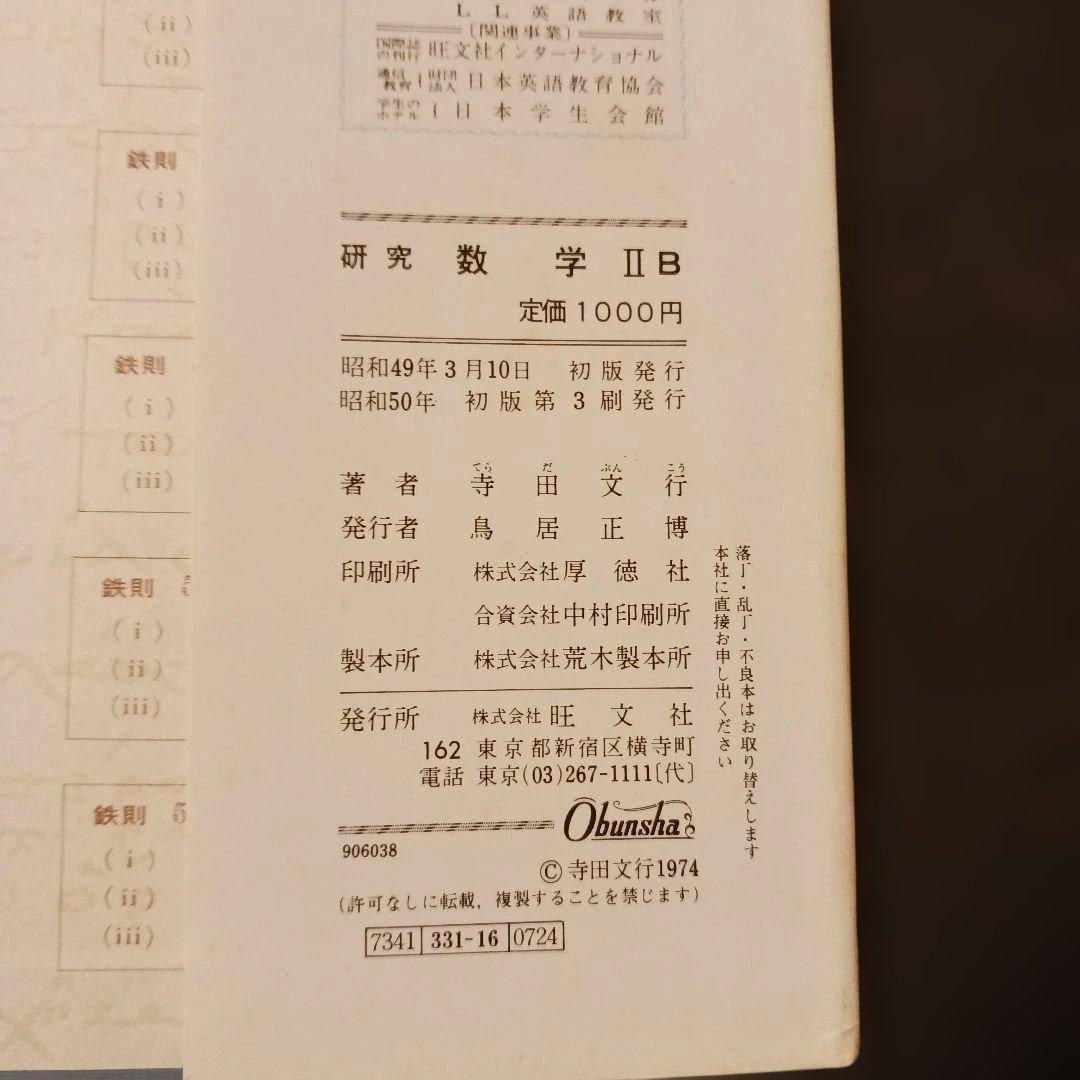 (ii)
(iii)
鉄則
(i)
(ii)
(iii)
鉄則
(i)
(ii)
(iii)
鉄則
(i)
(ii)
(iii)
鉄則 5
(i)
(ii)
(iii)
LL英語教室
〔関連事業〕
国際誌の刊行 旺文社インターナショナル
通信教育 財団法人 日本英語教育協会
学生のホテル 日本学生会館
研究 数学 ⅡB
定価1000円
昭和49年3月10日 初版発行
昭和50年 初版第3刷発行
てら だ ぶん こう
著者 寺田文行
発行者 鳥居正博
印刷所 株式会社 厚徳社
合資会社 中村印刷所
製本所 株式会社 荒木製本所
発行所 株式会社 旺文社
162 東京都新宿区横寺町
電話 東京(03)267-1111〔代〕
Obunsha
906038
©寺田文行1974
(許可なしに転載,複製することを禁じます)
7341 331-16 0724
落丁・乱丁・不良本はお取り替えします
本社に直接お申し出ください